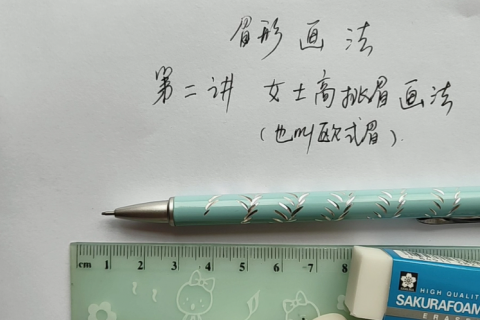 眉形画法
第二讲 女士高挑眉画法
(也叫欧式眉).
cm 1 2 3 4 5 6 7 8
HIGH QUALIT
SAKURAFOAM
ERASE